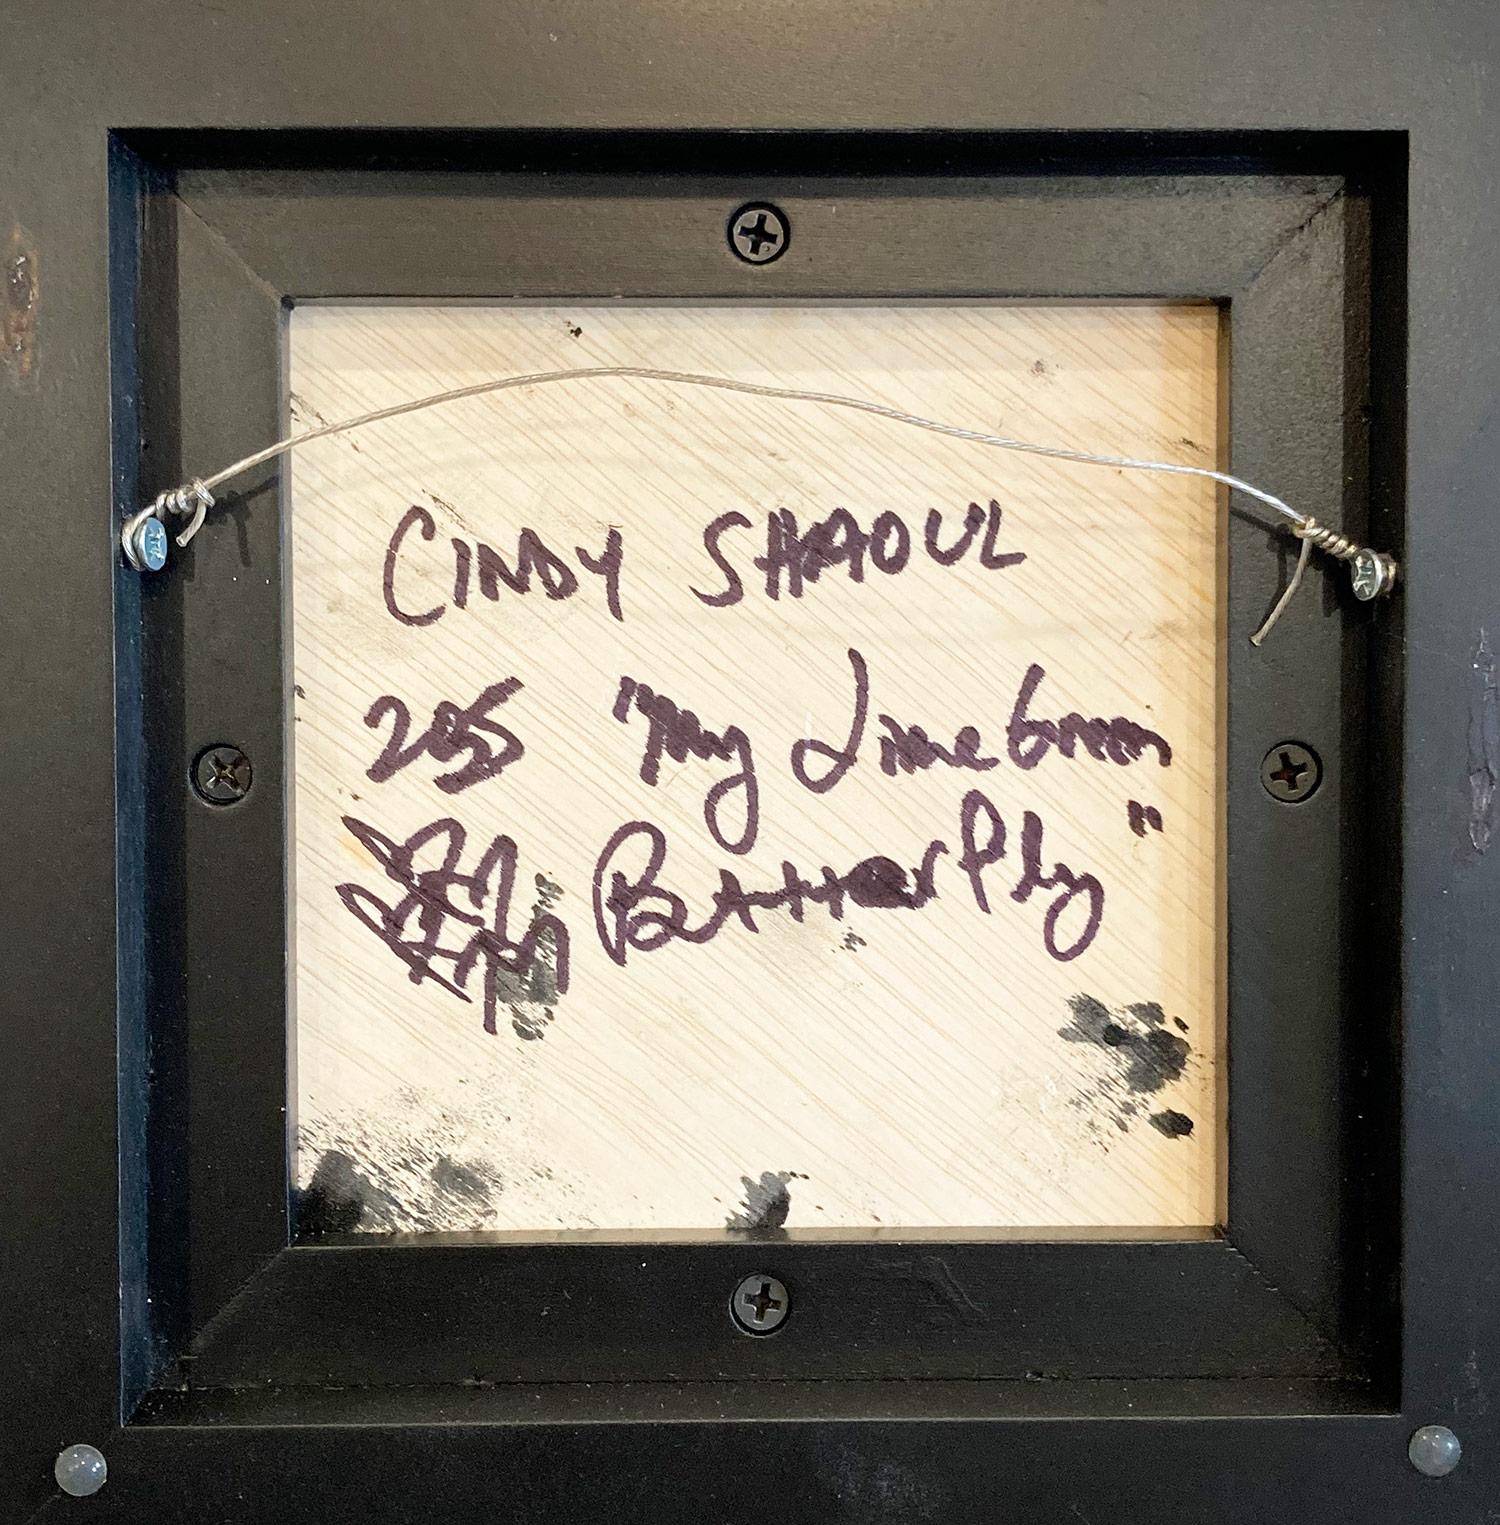 CINDY SHAOUL
205 "My Lime Green
Butterfly"